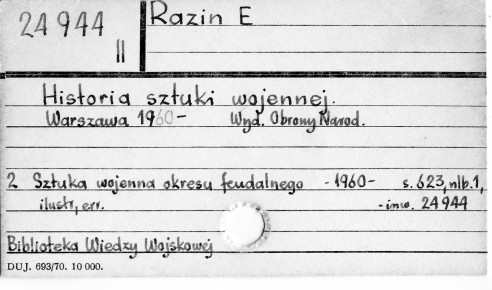 24 944
II
Razin E
Historia sztuki wojennej.
Warszawa 1960- Wyd. Obrony Narod.
2 Sztuka wojenna okresu feudalnego -1960- s. 623, nlb. 1,
ilustr, err. -inw. 24944
Biblioteka Wiedzy Wojskowej
DUJ. 693/70. 10 000.